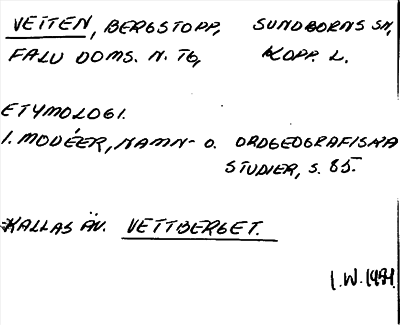 VETTEN, BERGSTOPP, SUNDBORNS SN,
FALU DOMS. N. TG, KOPP. L.
ETYMOLOGI.
I. MODÉER, NAMN- O. ORDGEOGRAFISKA
STUDIER, S. 85.
KALLAS ÄV. VETTBERGET.
I.W.